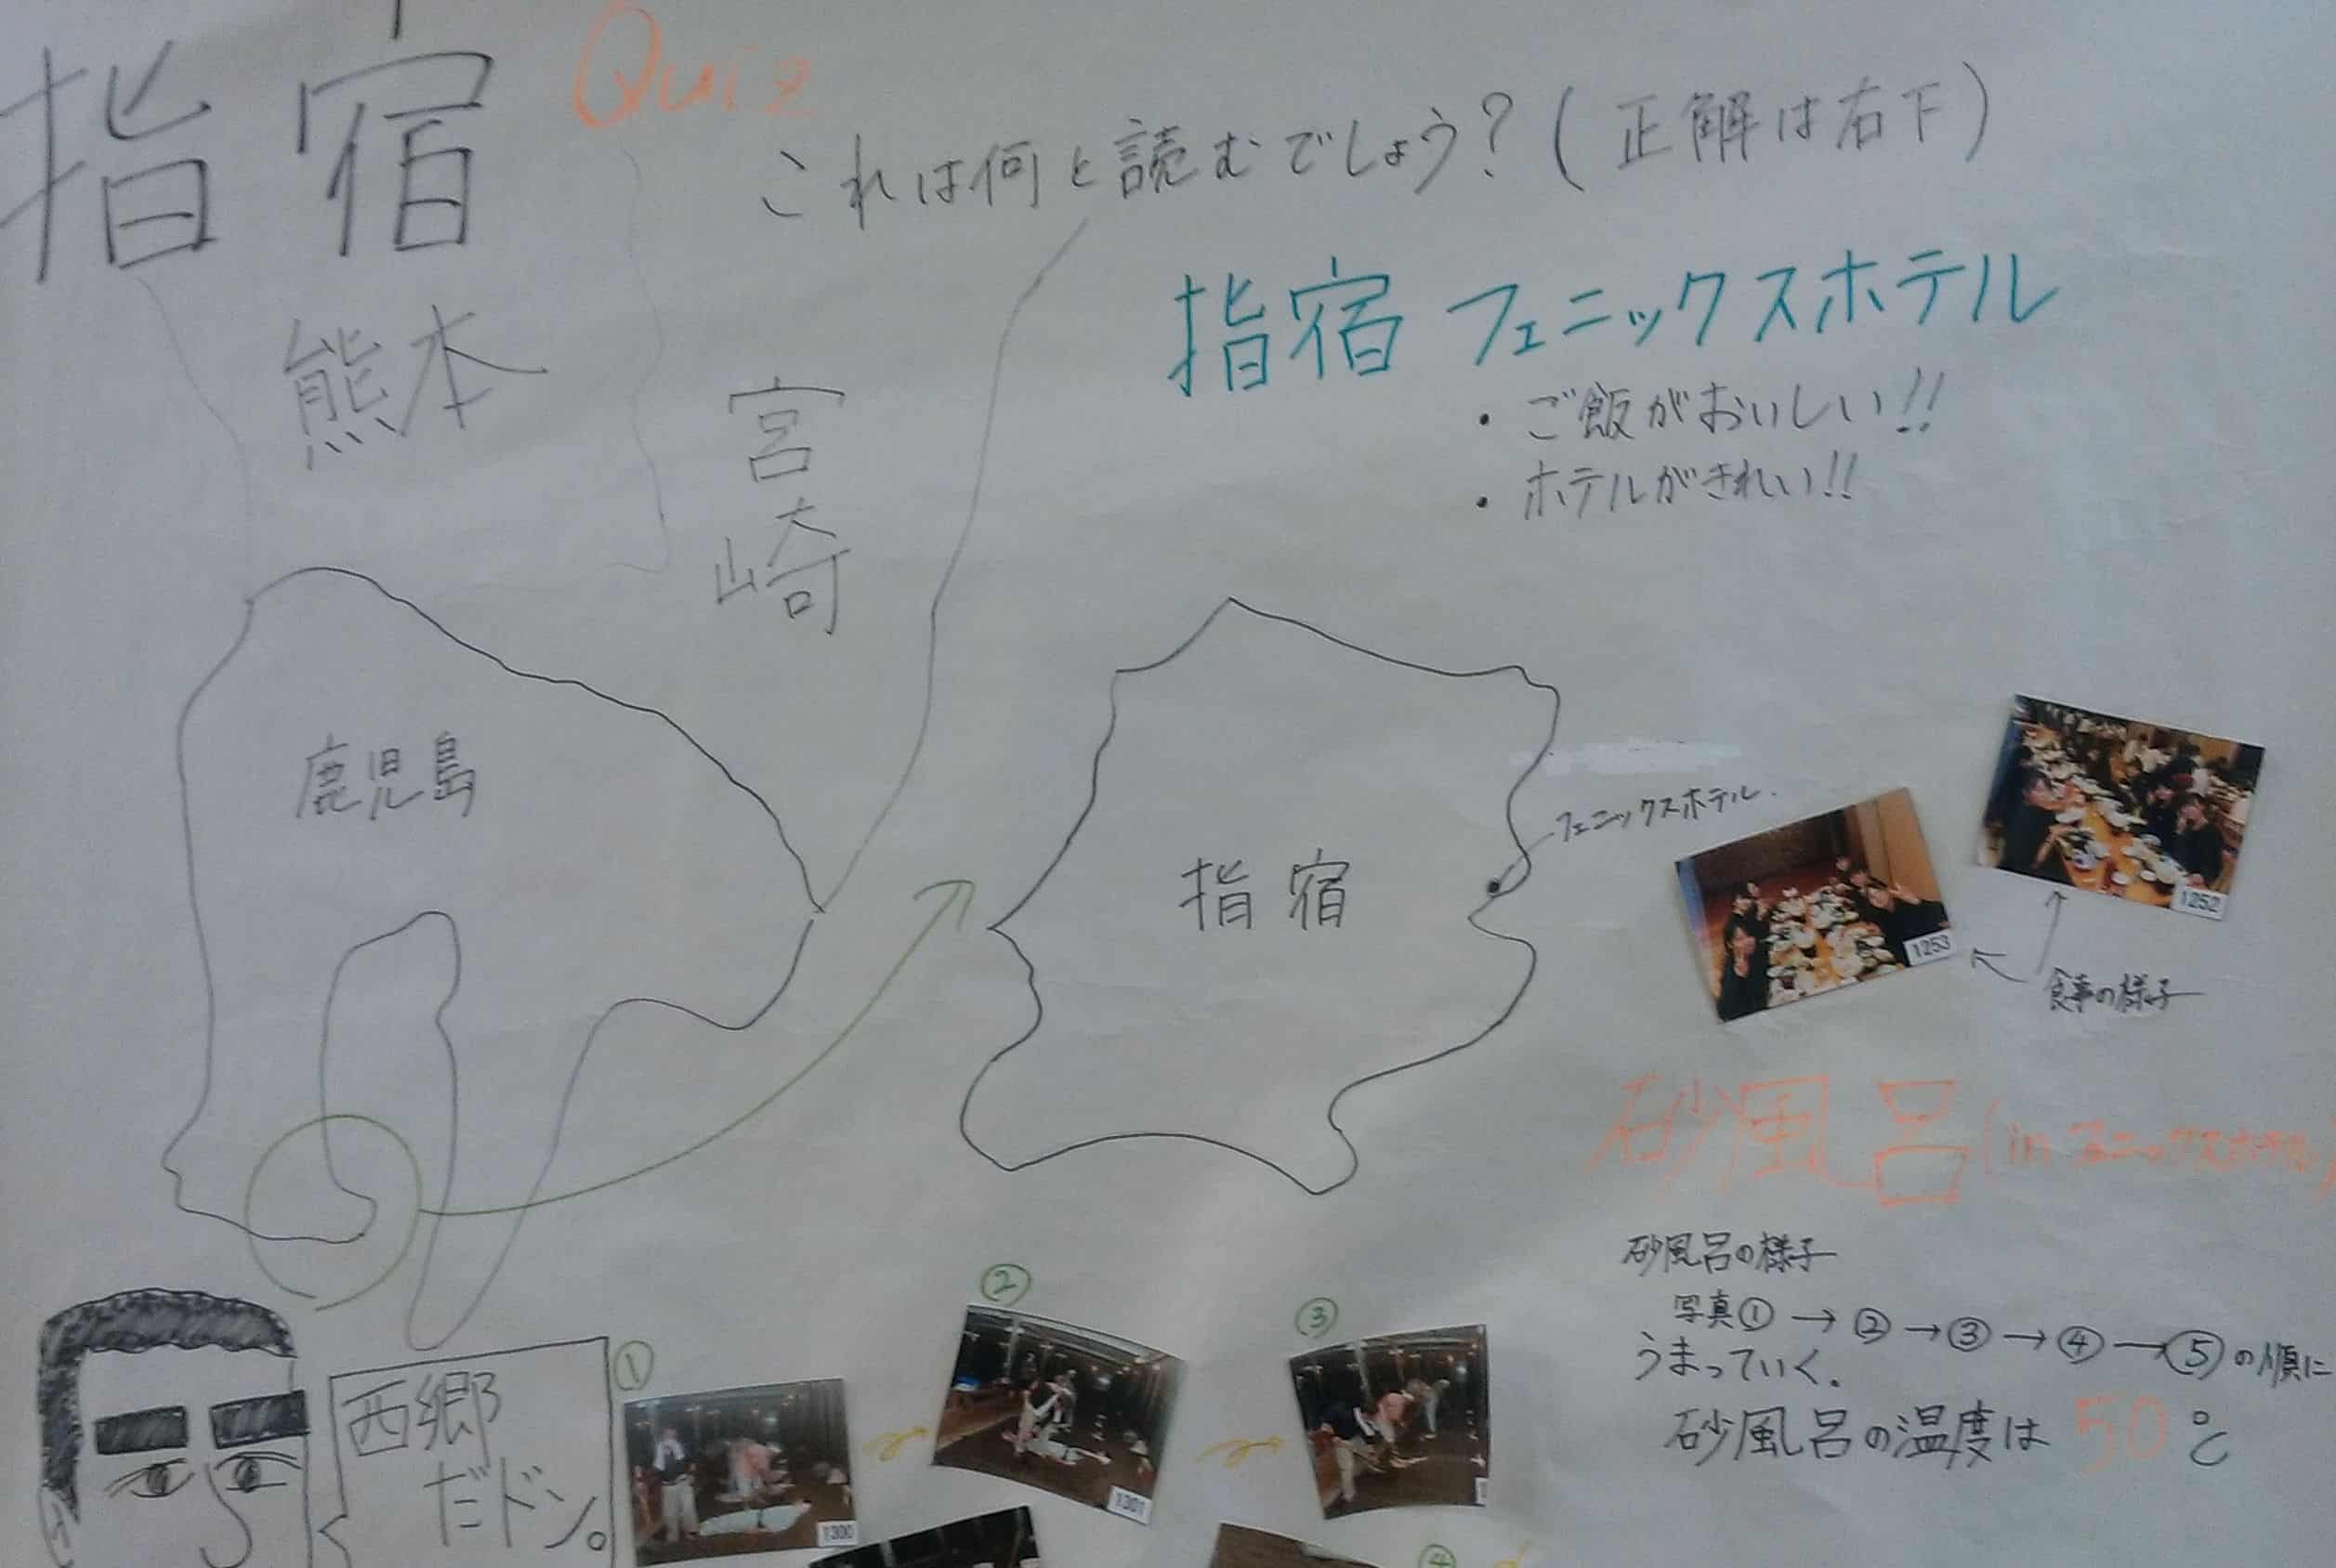 指宿
Quiz
これは何と読むでしょう?(正解は右下)
熊本
宮崎
指宿 フェニックスホテル
・ご飯がおいしい!!
・ホテルがきれい!!
鹿児島
指宿
フェニックスホテル.
1252
1253
食事の様子
砂風呂(in フェニックスホテル)
砂風呂の様子
写真①→②→③→④→⑤の順に
うまっていく.
砂風呂の温度は50℃
西郷
だドン。
①
②
③
1300
1301
④